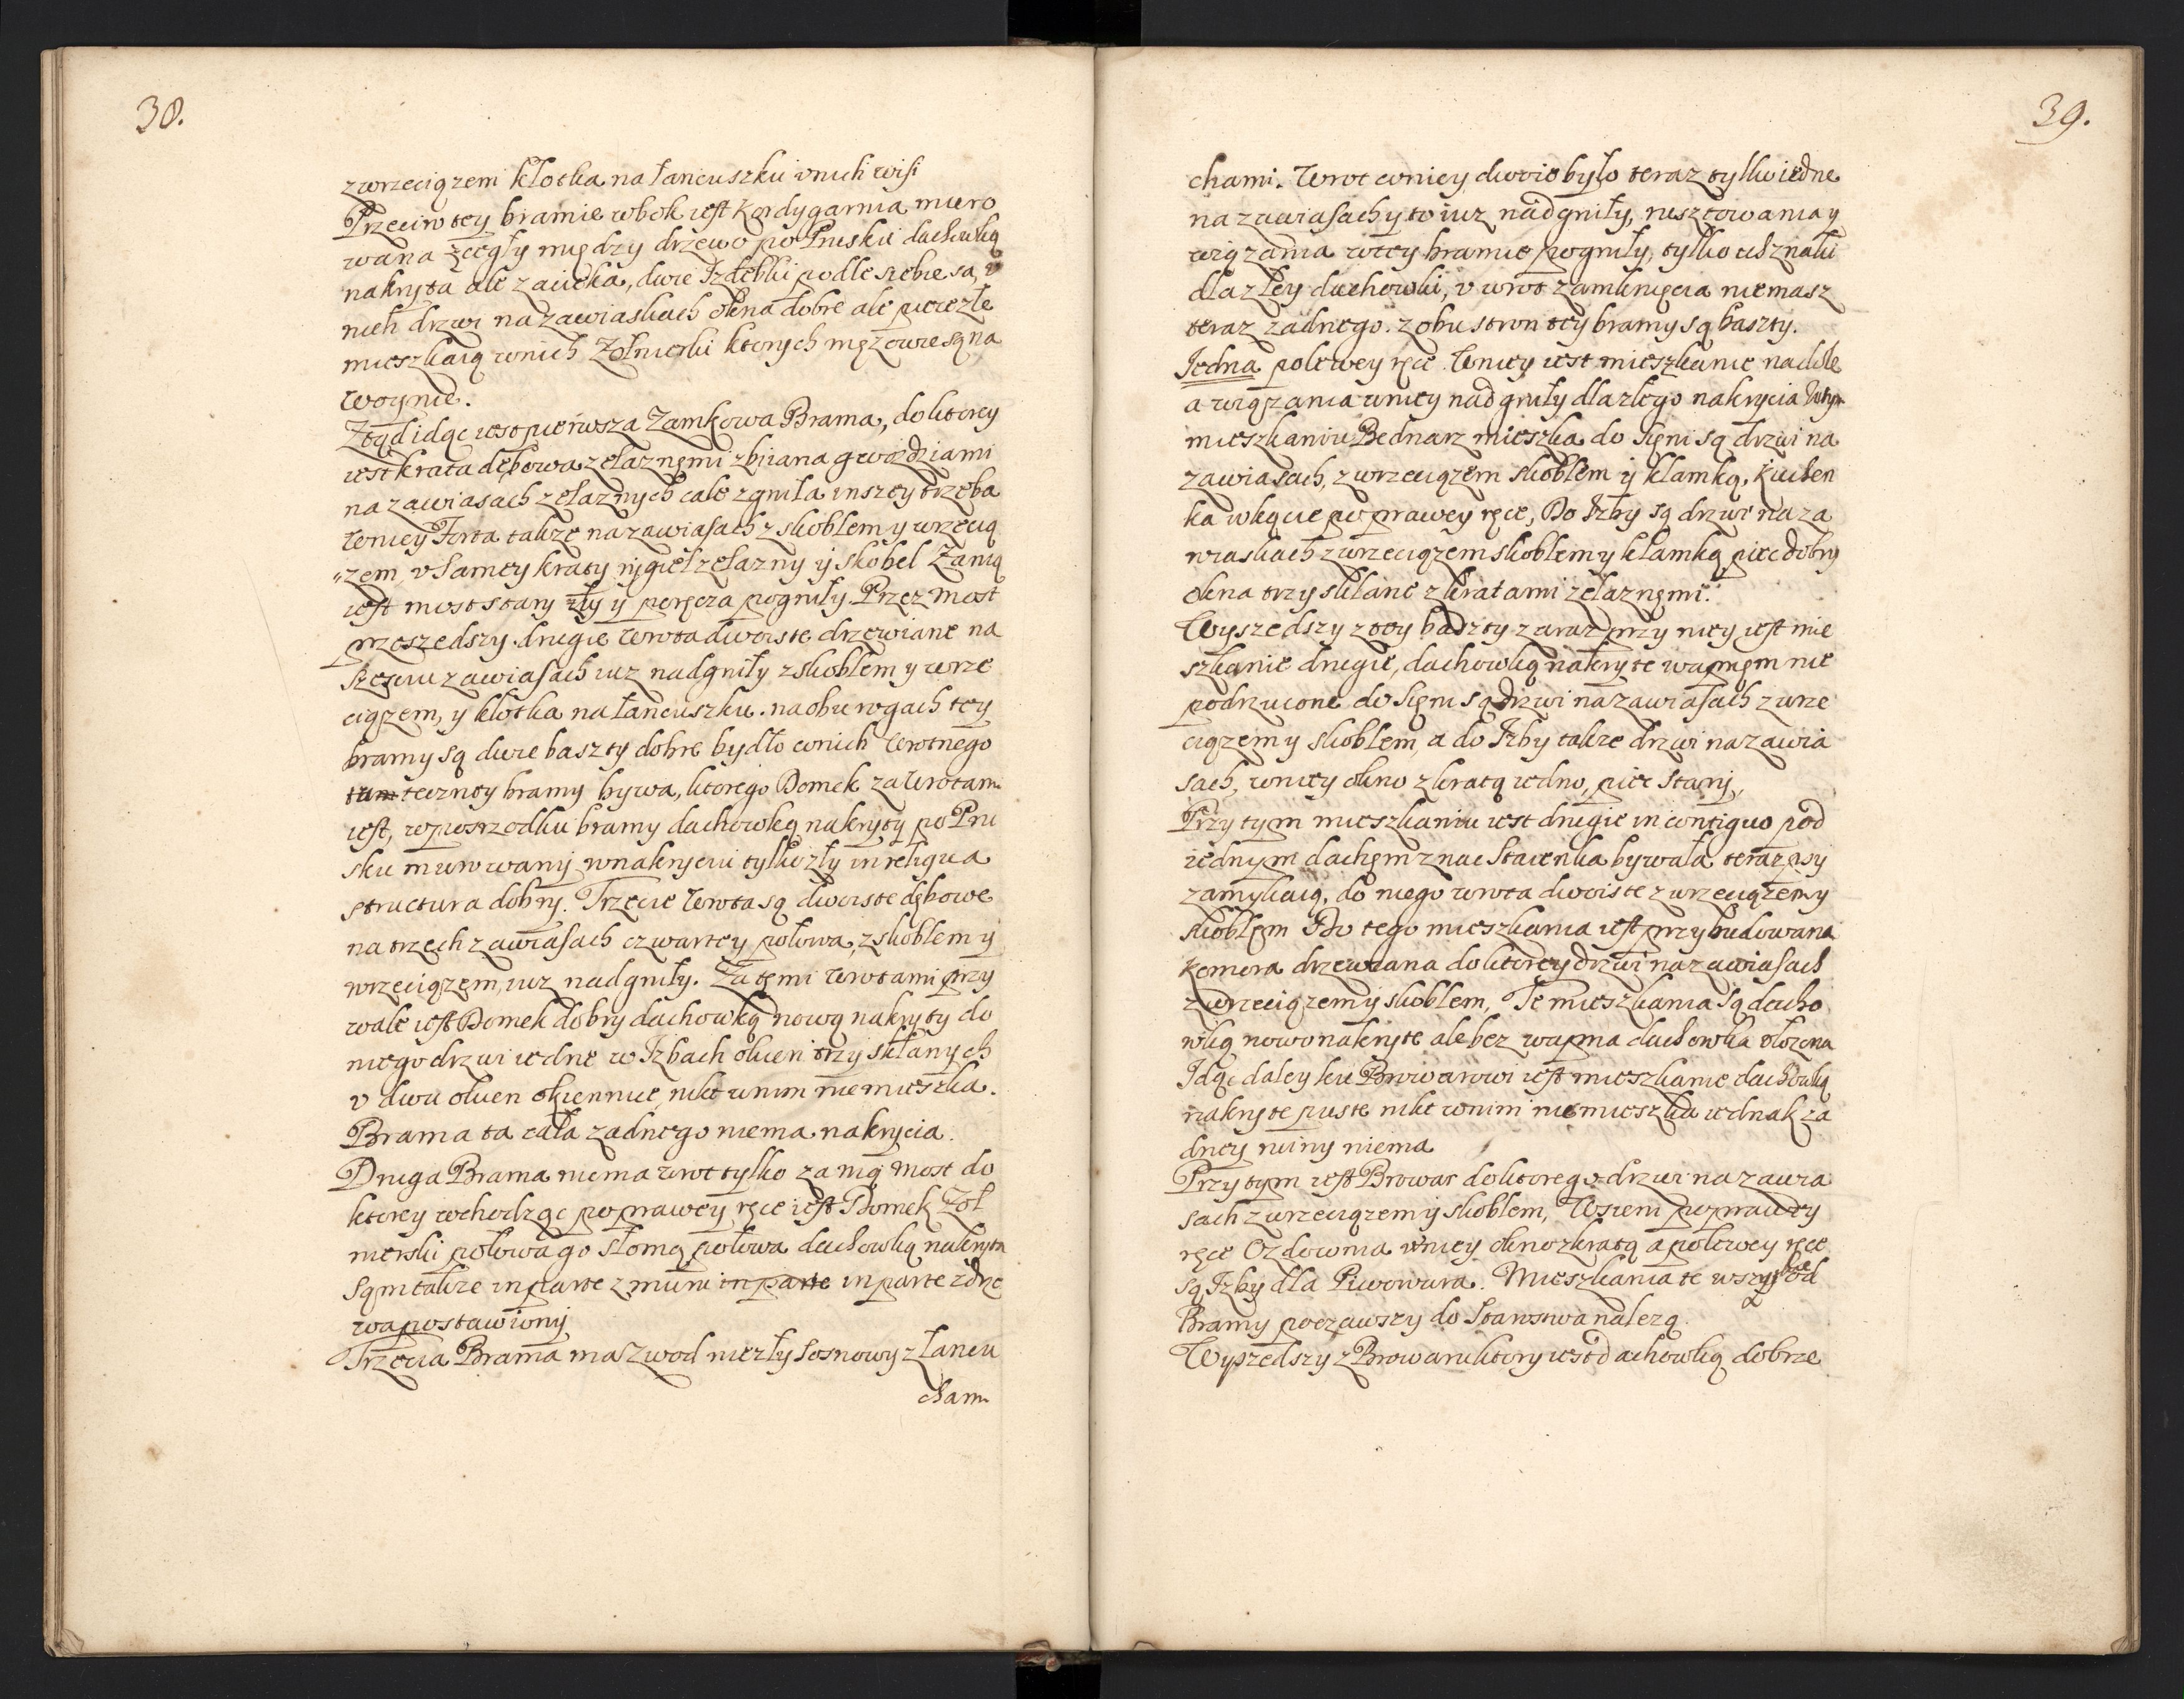 38.
z wrzeciązem kłotka na łancuszku v nich wisi
Przeciw tey bramie w bok iest Kordygarnia muro
wana z cegły między drzewo po Prusku dachowką
nakryta ale zacieka, dwie Izdebki podle siebie są, v
nich drzwi na zawiaskach okna dobre ale piece złe
mieszkaią w nich Zołnierki ktorych męzowie są na
Woynie.
Ztąd idąc iest pierwsza Zamkowa Brama, do ktorey
iest krata dębowa zelaznemi zbijana gwozdziami
na zawiasach zelaznych cale zgniła inszey trzeba
w niey Forta takze na zawiasach z skoblem y wrzecią
"zem, v samey kraty rygiel zelazny y skobel Za nią
iest most stary zły y poręcza pogniły. Przez most
przeszedszy drugie wrota dwoiste drzewiane na
sześciu zawiasach iuz nadgniły z skoblem y wrze
ciązem, y klotka na łancuszku. na obu rogach tey
bramy są dwie baszty dobre bydło w nich Wrotnego
tam teczney bramy bywa, ktorego Domek za Wrotam
iest, w posrzodku bramy dachowką nakryty po Pru
sku murowany w nakryciu tylko zły in reliqua
structura dobry. Trzecie Wrota są dwoiste dębowe
na trzech zawiasach czwartey połowa, z skoblem y
wrzeciązem, iuz nadgniły. Za temi Wrotami przy
wale iest Domek dobry dachowką nową nakryty do
niego drzwi iedne w Izbach okien trzy sklanych
v dwu okien okiennice, nikt w nim nie mieszka.
Brama ta cała zadnego niema nakrycia.
Druga Brama niema wrot tylko za nią most do
ktorey wchodząc po prawey ręce iest Domek Zoł
nierski połowa go słomą połowa dachowką nakryta
sam takze in parte z muru in parte in parte z drze
wa postawiony
Trzecia Brama ma Zwod niezły sosnowy z łancu
cham
39.
chami. Wrot w niey dwoie było teraz tylko iedne
na zawiasach y to iuz nadgniły, rusztowania y
wiązania w tey bramie pogniły, tylko uksznałt
dla zley dachowki, v wrot zamknięcia niemasz
teraz zadnego. z obu stron tey bramy są baszty.
Iedna po lewey ręce. W niey iest mieszkanie na dole
a wiązania w niey nadgniły dla złego nakrycia W tym
mieszkaniu Bednarz mieszka do Sieni są drzwi na
zawiasach, z wrzeciązem skoblem y klamką, kuchen
ka w kącie po prawey ręce, Do Izby są drzwi na za
wiaskach z wrzeciązem skoblem y klamką piec dobry
okna trzy sklane z kratami zelaznemi.
Wyszedszy z tey baszty zaraz przy niey iest mie
szkanie drugie, dachowką nakryte wapnem nie
podrzucone do Sieni są drzwi na zawiasach z wrze
ciązem y skoblem, a do Izby takze drzwi na zawia
sach, w niey okno z kratą iedno, piec stary,
Przy tym mieszkaniu iest drugie in contiguo pod
iednym dachem znac Staienka bywała teraz psy
zamykaią, do niego wrota dwoiste z wrzeciązem y
skoblem Do tego mieszkania iest przybudowana
Komora drzewiana do ktorey drzwi na zawiasach
z wrzeciązem y skoblem, Te mieszkania są dacho
wką nowo nakryte ale bez wapna dachowka włozona
Idąc daley ku Browarowi iest mieszkanie dachowką
nakryte puste nikt w nim nie mieszka iednak za
dney ruiny niema
Przy tym iest Browar do ktorego drzwi na zawia
sach z wrzeciązem y skoblem, W sieni po prawey
ręce Ozdownia w niey okno z kratą a po lewey ręce
są Izby dla Piwowara. Mieszkania te wszystkie od
Bramy począwszy do Starostwa nalezą.
Wyszedszy z Browaru ktory iest dachowką dobrze